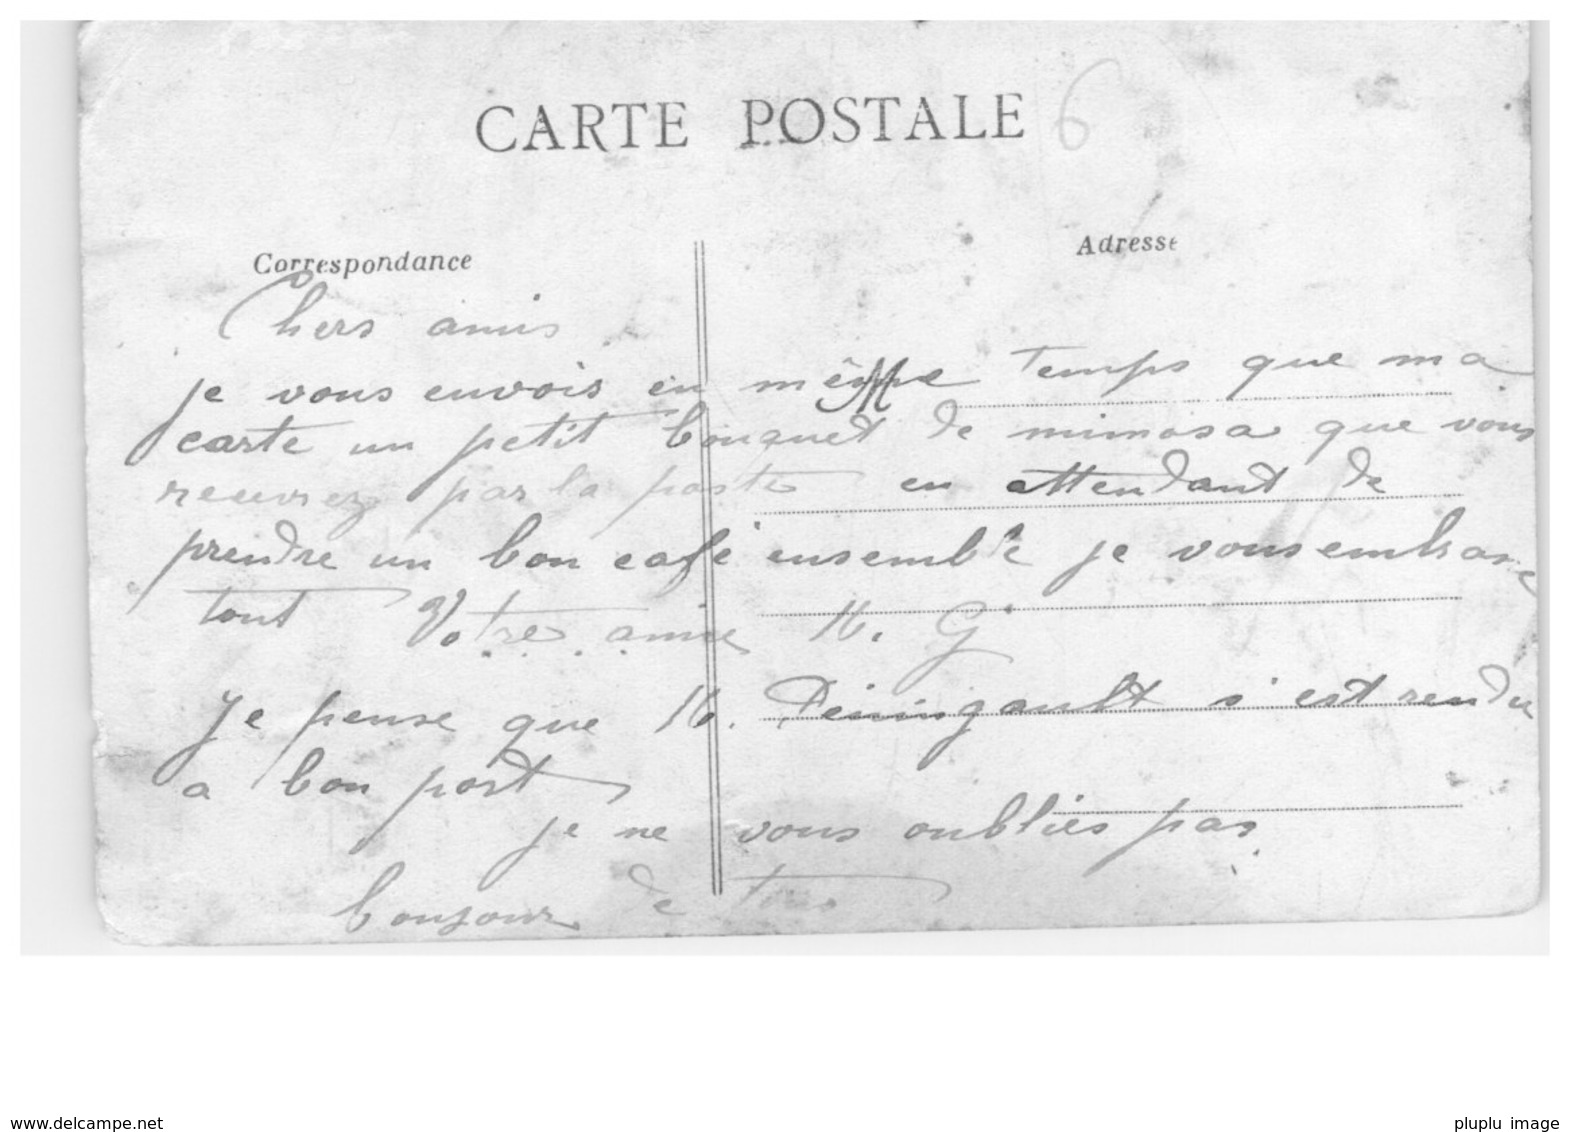 CARTE POSTALE 6
Correspondance
Adresse
Chers amis
je vous envois en même temps que ma
carte un petit bouquet de mimosa que vous
recevrez par la poste en attendant de
prendre un bon café ensemble je vous embrasse
tout Votre amie M. G
Je pense que M. s'est rendu
a bon port
je ne vous oublies pas
bonjour de tous
www.delcampe.net
pluplu image